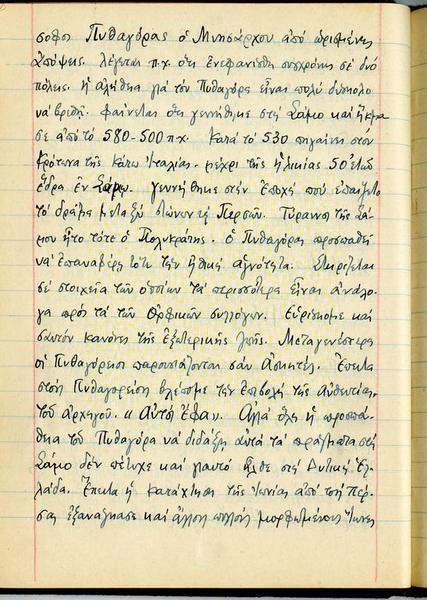 σοφοι Πυθαγόρας ὁ Μνησάρχου ἀπό ὡρισμένης
ἀπόψεις. λέγεται π.χ. ὅτι ἐνεφανίσθη συγχρόνως σὲ δυό
πόλεις. ἡ ἀλήθεια γιά τόν Πυθαγόρα εἶναι πολύ δύσκολο
νά βρεθῇ. Φαίνεται ὅτι γεννήθηκε στή Σάμο καί ἤκμα
σε ἀπό τό 580-500 π.χ. Κατά τό 530 πηγαίνει στόν
Κρότωνα τῆς Κάτω Ἰταλίας. μέχρι τῆς ἡλικίας 50 ἐτῶν
ἔδρα ἐν Σάμῳ. γεννήθηκε στήν ἐποχή πού ἐπαίζετο
τό δρᾶμα μεταξύ Ἰώνων καί Περσῶν. Τύραννος τῆς Σά-
μου ἦτο τότε ὁ Πολυκράτης. ὁ Πυθαγόρας προσπαθεῖ
νά ἐπαναφέρῃ τότε τήν ἠθική ἁγνότητα. Στηρίζεται
σέ στοιχεῖα τῶν ὁποίων τά περισσότερα εἶναι ἀνάλο-
γα πρός τά τῶν Ὀρφικῶν συλλόγων. Εὑρίσκομε καί
σ' αυτόν κανόνες τῆς ἐξωτερικῆς ζωῆς. Μεταγενέστερα
οἱ Πυθαγόρειοι παρουσιάζονται σάν Ἀσκηταί. Ἔπειτα
στούς Πυθαγορείους βλέπομε τήν ἐπιβολή τῆς αὐθεντίας
τοῦ ἀρχηγοῦ. « Αὐτός ἔφα». Ἀλλά ὅλη ἡ προσπά-
θεια τοῦ Πυθαγόρα νά διδάξῃ αυτά τά πράγματα στή
Σάμο δέν πέτυχε καί γιαυτό ἦλθε στή Δυτική Ἑλ-
λάδα. Ἔπειτα ἡ κατάκτηση τῆς Ἰωνίας ἀπό τούς Πέρ-
σας ἐξανάγκασε καί ἄλλους πολλούς μορφωμένους Ἴωνες